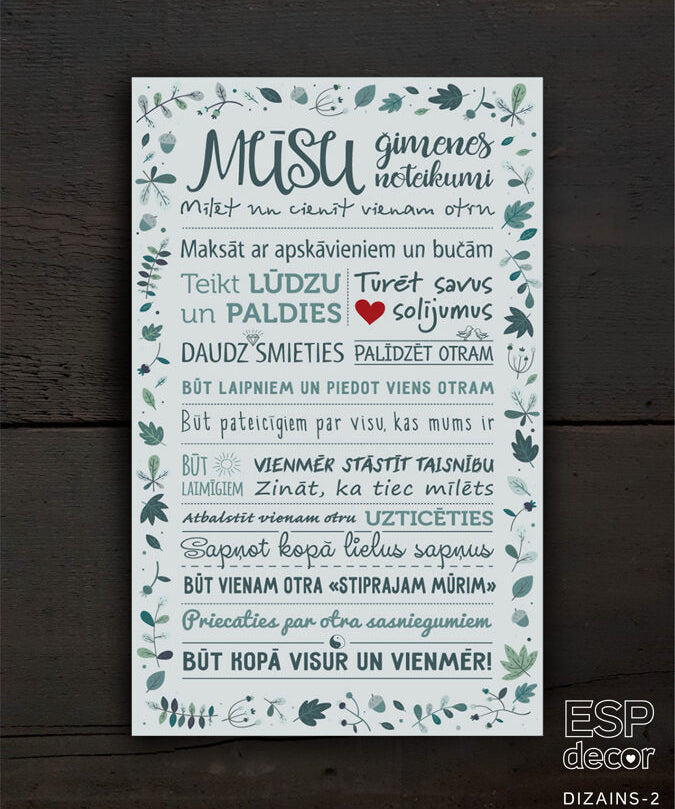 MŪSU ģimenes
noteikumi
Mīlēt un cienīt vienam otru
Maksāt ar apskāvieniem un bučām
Teikt LŪDZU
un PALDIES
Turēt savus
solījumus
DAUDZ SMIETIES
PALĪDZĒT OTRAM
BŪT LAIPNIEM UN PIEDOT VIENS OTRAM
Būt pateicīgiem par visu, kas mums ir
BŪT
LAIMĪGIEM
VIENMĒR STĀSTĪT TAISNĪBU
Zināt, ka tiec mīlēts
Atbalstīt vienam otru
UZTICĒTIES
Sapņot kopā lielus sapņus
BŪT VIENAM OTRA «STIPRAJAM MŪRIM»
Priecāties par otra sasniegumiem
BŪT KOPĀ VISUR UN VIENMĒR!
ESP
decor
DIZAINS-2